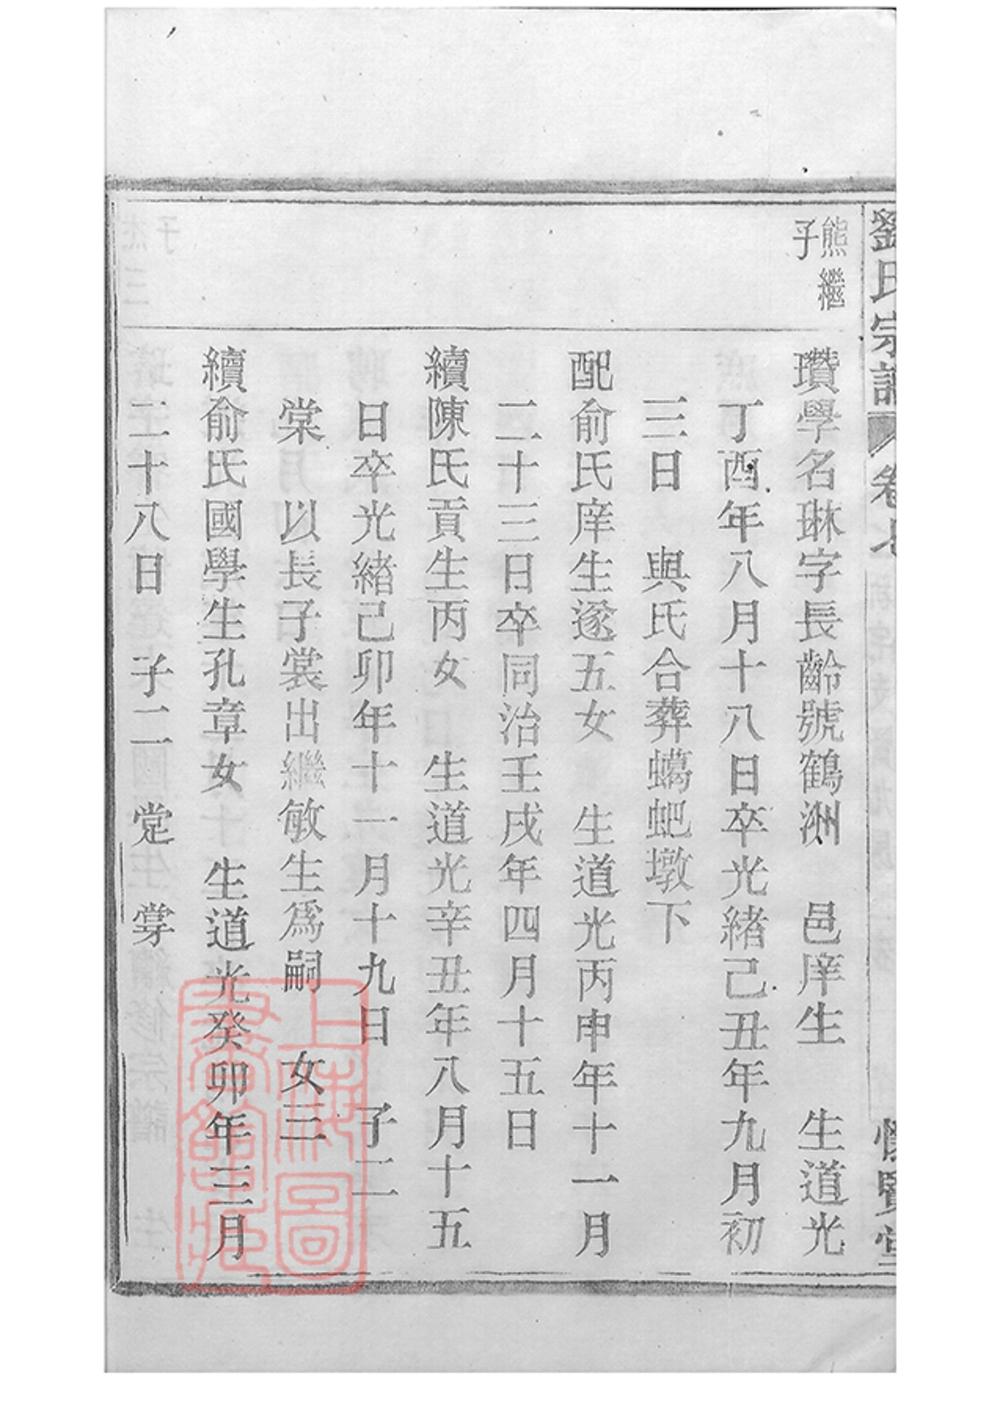 劉氏宗譜 卷七 懷賢堂
熊繼
子
瓚學名琳字長齡號鶴洲 邑庠生 生道光
丁酉年八月十八日卒光緒己丑年九月初
三日 與氏合葬蟏蚆墩下
配俞氏庠生遂五女 生道光丙申年十一月
二十三日卒同治壬戌年四月十五日
續陳氏貢生丙女 生道光辛丑年八月十五
日卒光緒己卯年十一月十九日 子二
棠 以長子裳出繼敏生爲嗣 女三
續俞氏國學生孔章女 生道光癸卯年三月
二十八日 子二 党 掌
上海圖
書館藏